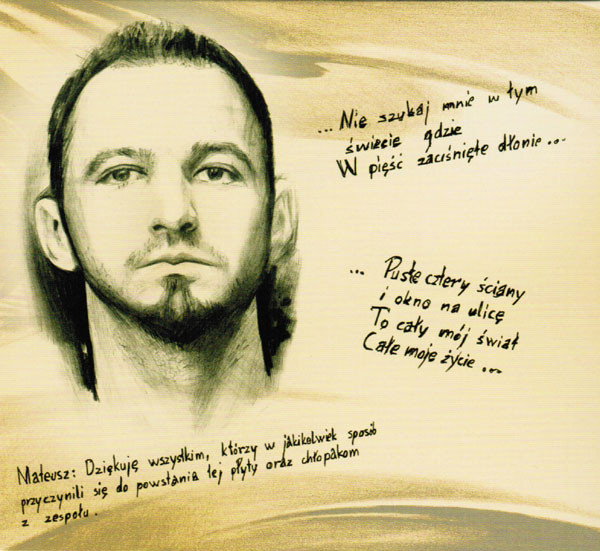 ... Nie szukaj mnie w tym
świecie gdzie
W pięść zaciśnięte dłonie ...
... Puste cztery ściany
i okno na ulicę
To cały mój świat
Całe moje życie ...
Mateusz: Dziękuję wszystkim, którzy w jakikolwiek sposób
przyczynili się do powstania tej płyty oraz chłopakom
z zespołu.